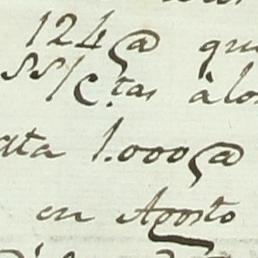 124@ que
SS/Ctas à los
ata 1.000@
en Agosto